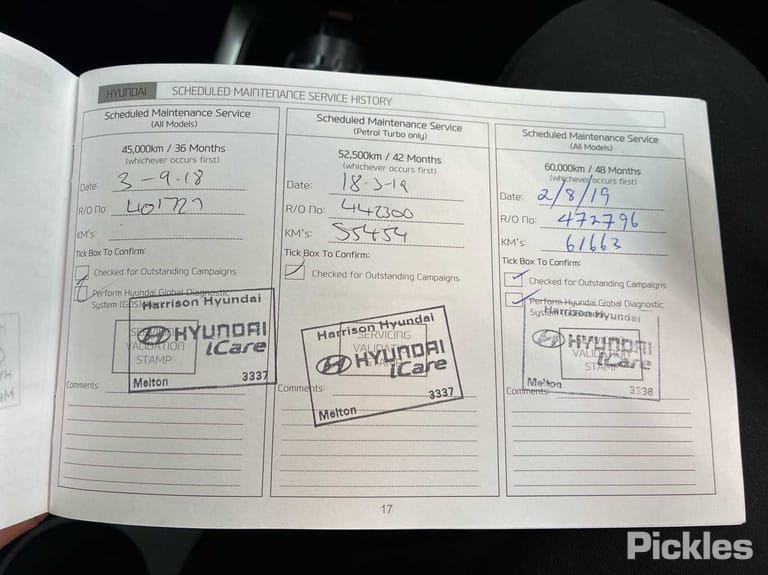 HYUNDAI SCHEDULED MAINTENANCE SERVICE HISTORY
Scheduled Maintenance Service
(All Models)
45,000km / 36 Months
(whichever occurs first)
Date: 3-9-18
R/O No: 401727
KM's:
Tick Box To Confirm:
Checked for Outstanding Campaigns
Perform Hyundai Global Diagnostic
System (GDS)
Harrison Hyundai
HYUNDAI
iCare
VALIDATION
STAMP
Melton 3337
Comments:
Scheduled Maintenance Service
(Petrol Turbo only)
52,500km / 42 Months
(whichever occurs first)
Date: 18-3-19
R/O No: 442300
KM's: 55454
Tick Box To Confirm:
Checked for Outstanding Campaigns
Harrison Hyundai
SERVICING
HYUNDAI
iCare
Comments: 3337
Melton
Scheduled Maintenance Service
(All Models)
60,000km / 48 Months
(whichever occurs first)
Date: 2/8/19
R/O No: 472796
KM's: 61663
Tick Box To Confirm:
Checked for Outstanding Campaigns
Perform Hyundai Global Diagnostic
System
Harrison Hyundai
HYUNDAI
iCare
Melton 3338
Comments:
17
Pickles